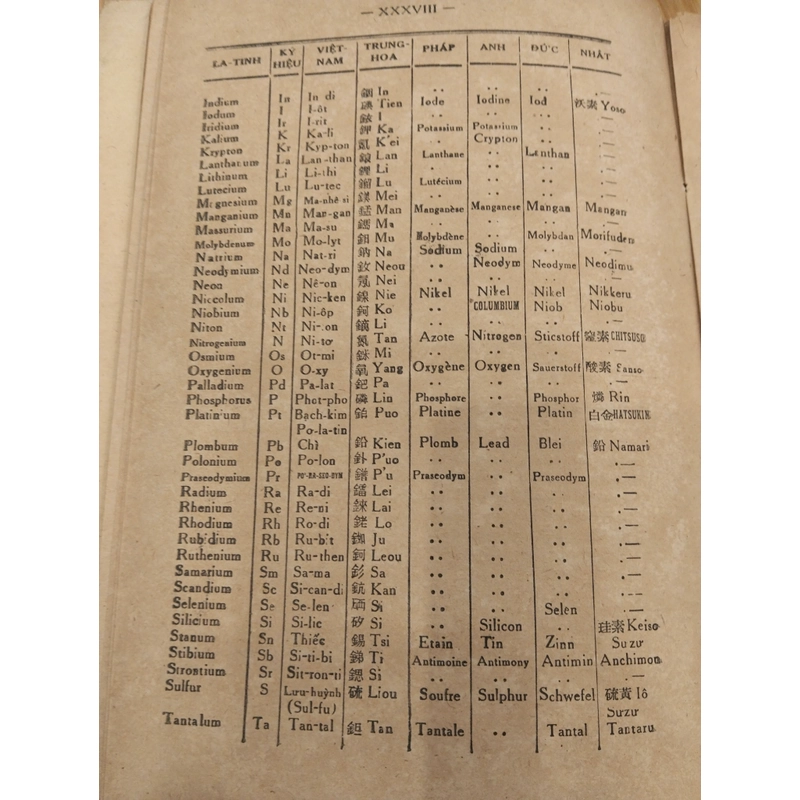 — XXXVIII —
LA-TINH KÝ HIỆU VIỆT-NAM TRUNG-HOA PHÁP ANH ĐỨC NHẬT
Indium In In di 銦 In .. .. .. .—
Iodum I I-ôt 碘 Tien Iode Iodine Iod 沃素 Yoso
Iridium Ir I-rit I .. .. .. .—
Kalium K Ka-li 鉀 Ka Potassium Potassium .. .—
Krypton Kr Kyp-ton 氪 K'ei .. Crypton .. .—
Lanthanum La Lan-than Lan Lanthane .. Lanthan .—
Lithinum Li Li-thi 鋰 Li .. .. .. .—
Lutecium Lu Lu-tec Lu Lutécium .. .. .—
Magnesium Mg Ma-nhê si 鎂 Mei .. .. .. .—
Manganium Mn Man-gan 錳 Man Manganèse Manganese Mangan Mangan
Massurium Ma Ma-su Ma .. .. .. .—
Molybdenum Mo Mo-lyt 鉬 Mu Molybdène .. Molybdan Morifuden
Natrium Na Nat-ri 鈉 Na Sodium Sodium .. .—
Neodymium Nd Neo-dym Neou .. Neodym Neodyme Neodimu
Neon Ne Nê-on 氖 Nei .. .. .. .—
Niccolum Ni Nic-ken 鎳 Nie Nikel Nikel Nikel Nikkeru
Niobium Nb Ni-ôp 鈳 Ko .. COLUMBIUM Niob Niobu
Niton Nt Ni-on Li .. .. .. .—
Nitrogenium N Ni-tơ 氮 Tan Azote Nitrogen Sticstoff 窒素 CHITSUSO
Osmium Os Ot-mi Mi .. .. .. .—
Oxygenium O O-xy 氧 Yang Oxygène Oxygen Sauerstoff 酸素 Sanso
Palladium Pd Pa-lat 鈀 Pa .. .. .. .—
Phosphorus P Phot-pho 磷 Lin Phosphore .. Phosphor 燐 Rin
Platinium Pt Bạch-kim 鉑 Puo Platine .. Platin 白金 HATSUKIN
Po-la-tin
Plombum Pb Chì 鉛 Kien Plomb Lead Blei 鉛 Namari
Polonium Po Po-lon 釙 P'uo .. .. .. .—
Praseodymium Pr PO-RA-SEO-DYM 鐠 P'u Praseodym .. Praseodym .—
Radium Ra Ra-di 鐳 Lei .. .. .. .—
Rhenium Re Re-ni 錸 Lai .. .. .. .—
Rhodium Rh Ro-di 銠 Lo .. .. .. .—
Rubidium Rb Ru-bit 銣 Ju .. .. .. .—
Ruthenium Ru Ru-then Leou .. .. .. .—
Samarium Sm Sa-ma Sa .. .. .. .—
Scandium Sc Si-can-di Kan .. .. .. .—
Selenium Se Se-len 硒 Si .. .. Selen .—
Silicium Si Si-lic 矽 Si .. Silicon .. 珪素 Keiso
Stanum Sn Thiếc 錫 Tsi Etain Tin Zinn Suzu
Stibium Sb Si-ti-bi 銻 Ti Antimoine Antimony Antimin Anchimon
Strostium Sr Sit-ron-ti 鍶 Si .. .. .. .—
Sulfur S Lưu-huỳnh 硫 Liou Soufre Sulphur Schwefel 硫黄 Iô
(Sul-fu) Suzu
Tantalum Ta Tan-tal 鉭 Tan Tantale .. Tantal Tantaru